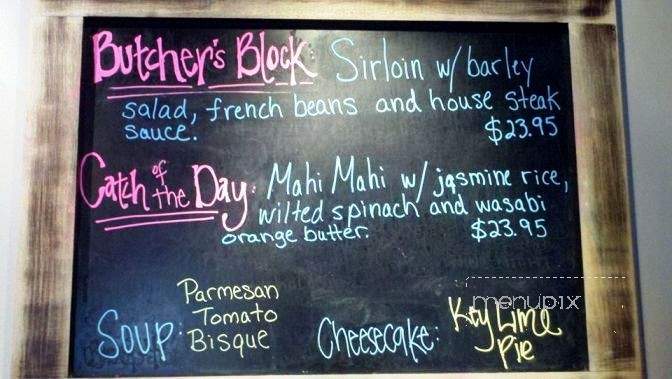 Butcher's Block: Sirloin w/ barley
salad, french beans and house steak
sauce. $23.95
Catch of the Day: Mahi Mahi w/ jasmine rice,
wilted spinach and wasabi
orange butter. $23.95
Soup: Parmesan
Tomato
Bisque
Cheesecake: Key Lime
Pie
menupix